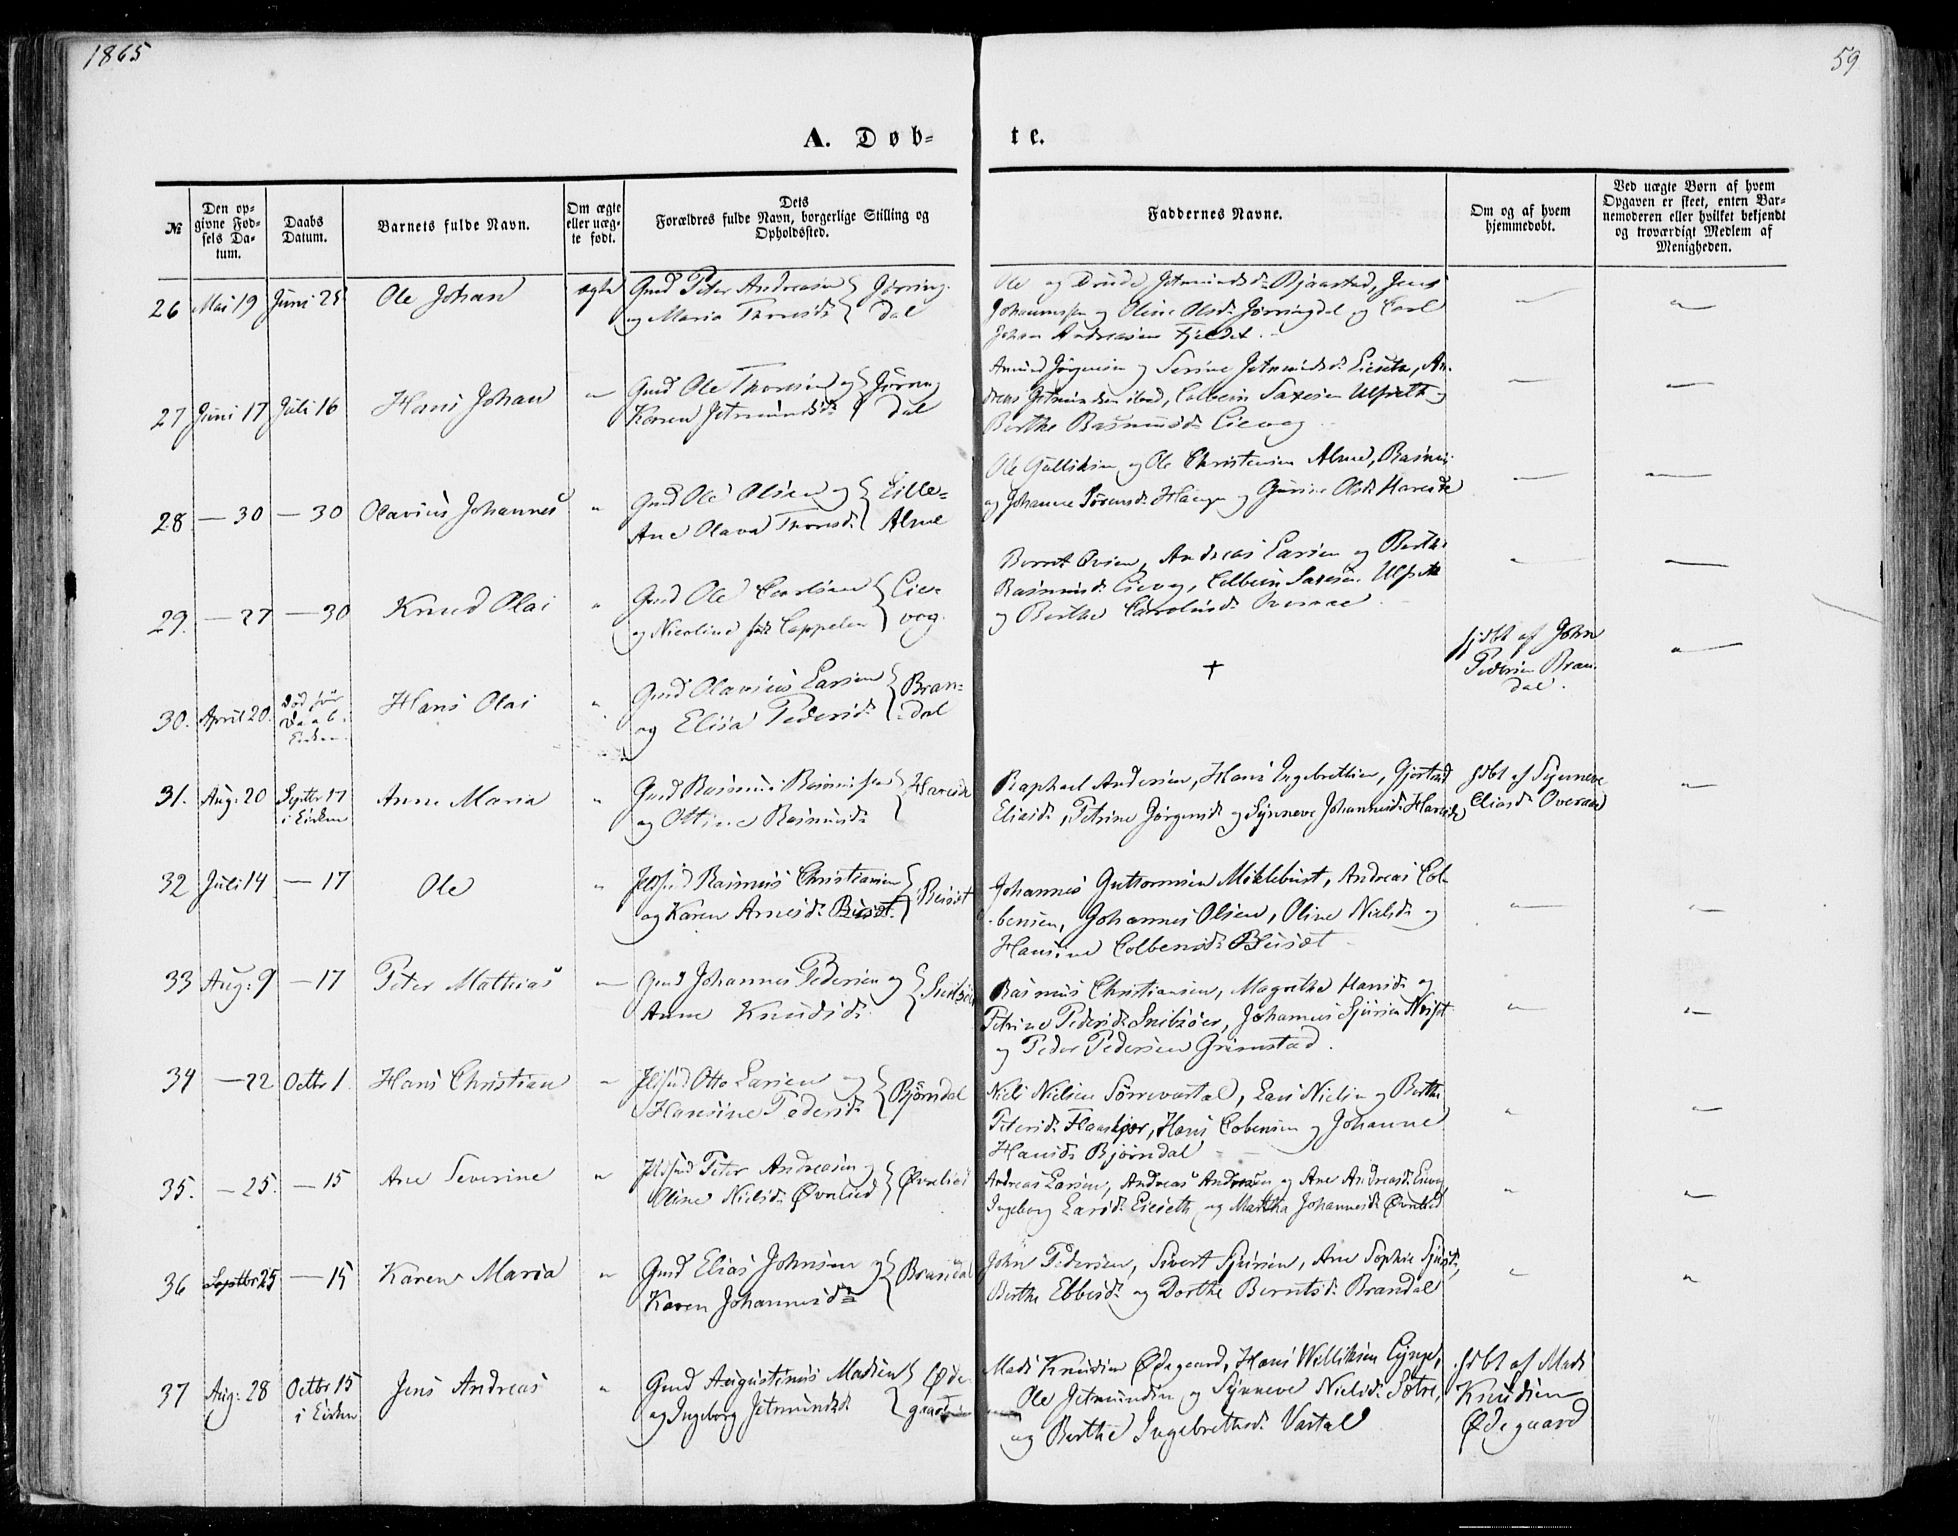 1865
59
A. Døb-
te.
№
Den op-
givne Fød-
sels Da-
tum.
Daabs
Datum.
Barnets fulde Navn.
Om ægte
eller uæg-
te født.
Dets
Forældres fulde Navn, borgerlige Stilling og
Opholdssted.
Faddernes Navne.
Om og af hvem
hjemmedøbt.
Ved uægte Børn af hvem
Opgaven er skeet, enten Bar-
nemoderen eller hvilket bekjendt
og troværdigt Medlem af
Menigheden.
26 Mai 19 Juni 25 Ole Johan ægte Gmd Peter Andreasen
og Maria Thoresd.
Jørring-
dal
Ole og Drude Jetmundsd. Bjaastad, Jens
Johannessen og Oline Olsd. Jørringdal og Carl
Johan Andreasen Fjeldet.
27 Juni 17 Juli 16 Hans Johan " Gmd Ole Thoresen og
Karen Jetmundsd.
Jørring
dal
Amund Jørgensen og Serine Jetmundsd. Eieseth, An-
dreas Jetmundsen ibid, Colbein Saxesen Ulfseth og
Berthe Rasmusd. Eievog.
28 — 30 — 30 Olavius Johannes " Gmd Ole Olsen og
Ane Olava Thoresd.
Lille-
Alme
Ole Gulliksen og Ole Christensen Alme, Rasmus
og Johanne Sørensd. Hauge og Gurine Olsd. Hareide
29. — 27 — 30 Knud Olai " Gmd Ole Carlsen
og Nicoline født Cappelen
Eie-
vog.
Bernt Ovsen, Andreas Larsen og Berthe
Rasmusd. Eievog, Colbein Saxesen Ulfseth
og Berthe Carolusd. Overaae.
30. April 20. Død før
Daab i
Kirken.
Hans Olai " Gmd Olavius Larsen
og Elisa Pedersd.
Bran-
dal
+
hjdbt af John
Pedersen Bran-
dal.
31. Aug: 20 Septbr 17
i Kirken
Anne Maria " Gmd Rasmus Rasmussen
og Ottine Rasmusd.
Hareide
Raphael Andersen, Hans Ingebrethsen, Gjertrud
Eliasd., Petrine Jørgensd. og Synneve Johannesd. Hareide
hjdbt af Synneve
Eliasd. Overaae
32 Juli 14 — 17 Ole " Rasmus Christiansen
og Karen Arnesd. Biset.
Biset
Johannes Guttormsen Mikkelbust, Andreas Col-
bensen, Johannes Olsen, Oline Nielsd. og
Hansine Colbensd. Biset
33 Aug: 9 — 17 Peter Mathias " Gmd Johannes Pedersen og
Anne Knudsd.
Snibsøer
Rasmus Christiansen, Magrethe Hansd. og
Petrine Pedersd. Snibsøer, Johannes Sjursen
og Peder Pedersen Grimstad.
34 — 22 Octbr 1. Hans Christian " Otto Larsen og
Hansine Pedersd.
Bjørndal
Niels Nielsen Sørevartal, Lars Nielsen og Berthe
Petersd. Flaaskjær, Hans Cobensen og Johanne
Hansd. Bjørndal
35. — 25. — 15 Ane Severine " Peter Andreasen og
Oline Nielsd. Øvrelied
Øvrelied
Andreas Larsen, Andreas Andersen og Ane Andreasd. Eievog,
Ingeborg Larsd. Eieseth og Martha Johannesd. Øvrelied
36 Septbr 25 — 15 Karen Maria " Gmd Elias Johnsen og
Karen Johannesd.
Brandal
John Pedersen, Sivert Sjursen, Ane Sophie Sjursd.,
Berthe Ebbesd. og Dorthe Berntsd. Brandal
37 Aug: 28 Octbr 15
i Kirken
Jens Andreas " Gmd Augustinus Madsen
og Ingeborg Jetmundsd.
Øde-
gaard
Mads Knudsen Ødegaard, Hans Williksen Lynge,
Ole Jetmundsen og Synneve Nielsd. Sætre,
og Berthe Ingebrethsd. Vartal
hjdbt af Mads
Knudsen
Ødegaard